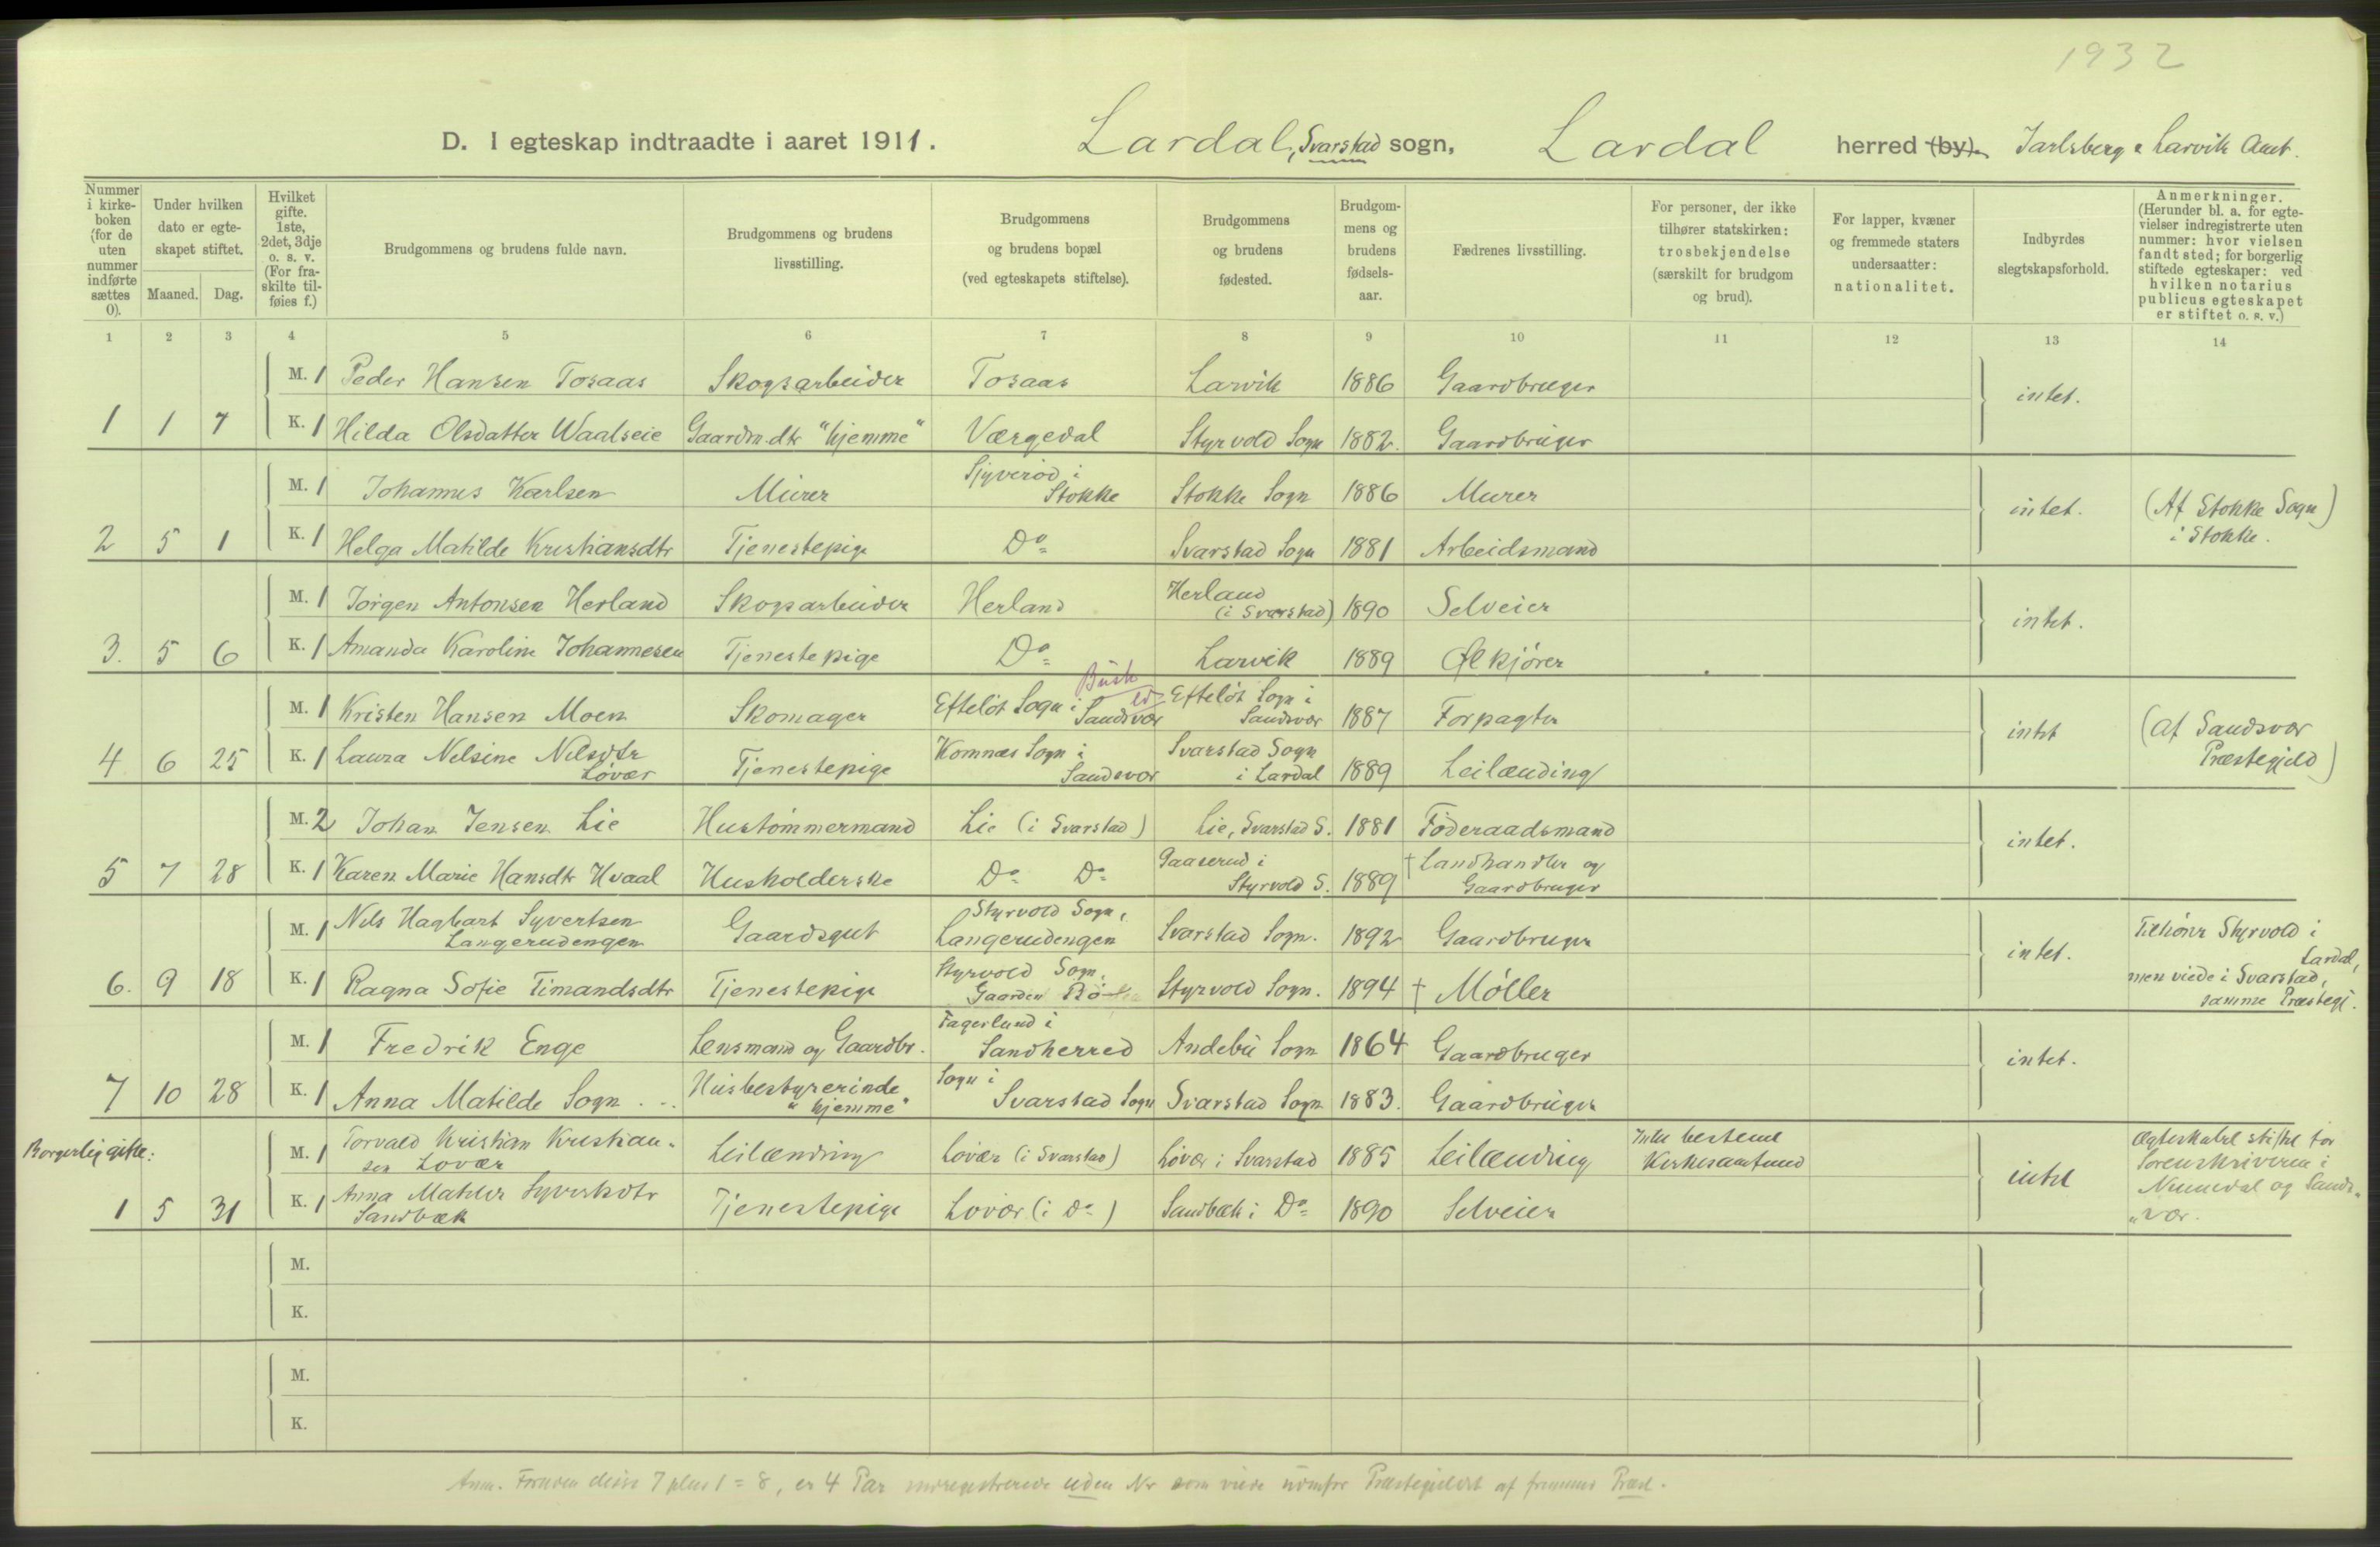 1932
D. I egteskap indtraadte i aaret 1911. Lardal, Svarstad sogn, Lardal herred (by). Jarlsberg & Larvik Amt.
Nummer i kirkeboken (for de uten nummer indførte sættes 0).
Under hvilken dato er egteskapet stiftet.
Maaned. Dag.
Hvilket gifte. 1ste, 2det, 3dje o. s. v. (For fraskilte tilføies f.)
Brudgommens og brudens fulde navn.
Brudgommens og brudens livsstilling.
Brudgommens og brudens bopæl (ved egteskapets stiftelse).
Brudgommens og brudens fødested.
Brudgommens og brudens fødselsaar.
Fædrenes livsstilling.
For personer, der ikke tilhører statskirken: trosbekjendelse (særskilt for brudgom og brud).
For lapper, kvæner og fremmede staters undersaatter: nationalitet.
Indbyrdes slegtskapsforhold.
Anmerkninger. (Herunder bl. a. for egtevielser indregistrerte uten nummer: hvor vielsen fandt sted; for borgerlig stiftede egteskaper: ved hvilken notarius publicus egteskapet er stiftet o. s. v.)
1 2 3 4 5 6 7 8 9 10 11 12 13 14
M. 1 Peder Hansen Tosaas Skogsarbeider Tosaas Larvik 1886 Gaardbruger intet.
1 1 7 K. 1 Hilda Olsdatter Waalseie Gaardm.dtr "hjemme" Værgedal Styrvold Sogn 1882. Gaardbruger
M. 1 Johannes Karlsen Murer Sjyverød i Stokke Stokke Sogn 1886 Murer intet. (Af Stokke Sogn)
2 5 1 K. 1 Helga Matilde Kristiansdtr Tjenestepige Do Svarstad Sogn 1881 Arbeidsmand i Stokke.
M. 1 Jørgen Antonsen Herland Skogsarbeider Herland Herland (i Svarstad) 1890 Selveier intet.
3. 5 6 K. 1 Amanda Karoline Johannesen Tjenestepige Do Larvik 1889 Ølkjører
Busk
M. 1 Kristen Hansen Moen Skomager Efteløt Sogn i Sandsvær Efteløt Sogn i Sandsvær 1887 Forpagter intet (Af Sandsvær
4 6 25 K. 1 Laura Nelsine Nilsdtr Løvær Tjenestepige Komnæs Sogn i Sandsvær Svarstad Sogn i Lardal 1889 Leilænding Præstegjeld)
M. 2 Johan Jensen Lie Hustømmermand Lie (i Svarstad) Lie, Svarstad S. 1881 Føderaadsmand intet.
5 7 28 K. 1 Karen Marie Hansdtr Hvaal Husholderske Do Do Gaaserud i Styrvold S. 1889 † Landhandler og Gaardbruger
M. 1 Nils Hagbart Syvertsen Langerudengen Gaardsgut Styrvold Sogn, Langerudengen Svarstad Sogn. 1892 Gaardbruger intet. Tilhører Styrvold i Lardal,
6. 9 18 K. 1 Ragna Sofie Timandsdtr Tjenestepige Styrvold Sogn. Gaarden Styrvold Sogn. 1894 † Møller men viede i Svarstad, samme Præstegj.
M. 1 Fredrik Enge Lensmand og Gaardbr. Fagerlund i Sandherred Andebu Sogn 1864 Gaardbruger intet.
7 10 28 K. 1 Anna Matilde Sogn Husbestyrerinde "hjemme" Sogn i Svarstad Sogn Svarstad Sogn 1883. Gaardbruger
Borgerlig gifte:
M. 1 Torvald Kristian Kristiansen Lovær Leilænding Lovær (i Svarstad) Løvær i Svarstad 1885 Leilænding Intet bestemt Kirkesamfund intet Ægteskabet stiftet for Sorenskriveren i
1 5 31 K. 1 Anna Matilde Syvertsdtr Sandbæk Tjenestepige Lovær (i Do) Sandbæk i Do 1890 Selveier Numedal og Sandsvær.
M.
K.
M.
K.
Anm. Foruden disse 7 plus 1 = 8, er 4 Par indregistrerede uden Nr som viede udenfor Præstegjeldet af fremmed Præst.